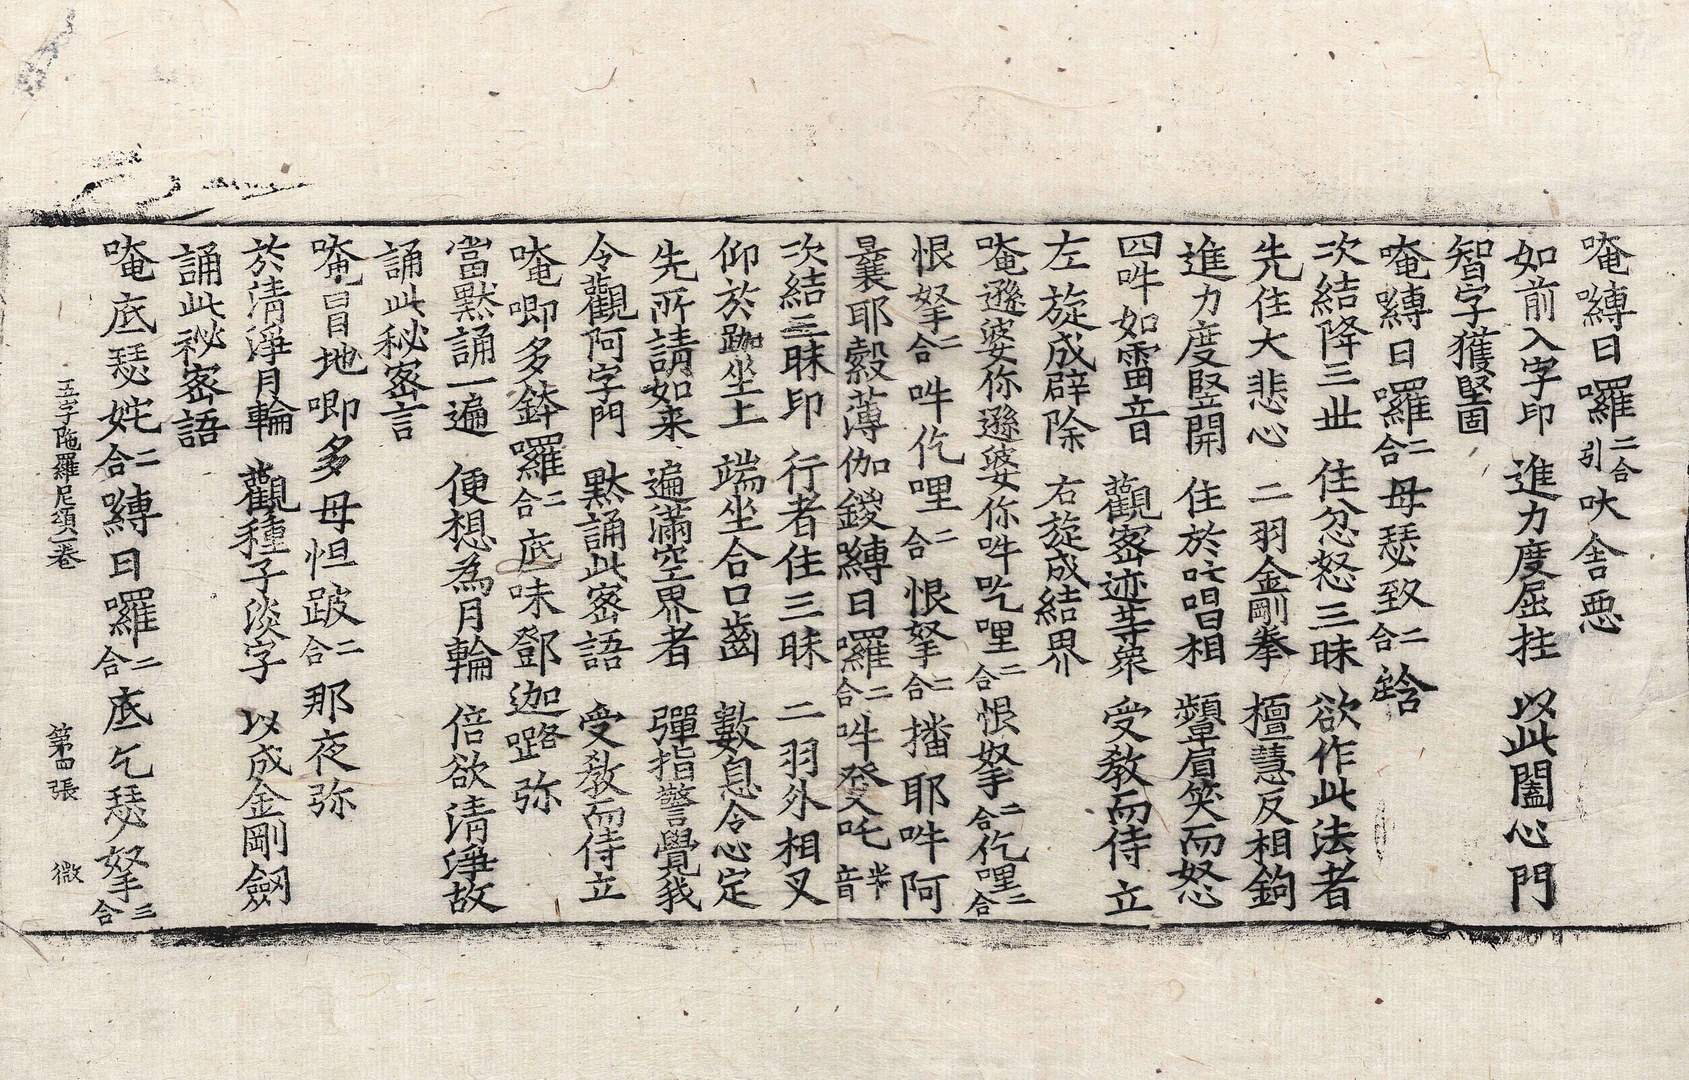 唵嚩日囉二合引吠舍惡
如前入字印 進力度屈拄 以此闔心門
智字獲堅固
唵嚩日囉二合母瑟致二合𤚥
次結降三世 住忿怒三昧 欲作此法者
先住大悲心 二羽金剛拳 檀慧反相鉤
進力度竪開 住於吒唱相 顰眉笑而怒
四吽如雷音 觀密迹等衆 受教而侍立
左旋成辟除 右旋成結界
唵遜婆你遜婆你吽屹哩二合恨拏二合仡哩二合
恨拏二合吽仡哩二合恨拏二合播耶吽阿
曩耶縠薄伽鑁嚩日囉二合吽發吒半音
次結三昧印 行者住三昧 二羽外相叉
仰於跏坐上 端坐合口齒 數息令心定
先所請如来 遍滿空界者 彈指警覺我
令觀阿字門 默誦此密語 受教而侍立
唵唧多鉢囉二合底味鄧迦𡀔弥
當默誦一遍 便想為月輪 倍欲清淨故
誦此秘密言
唵冒地唧多母怛跛二合那夜弥
於清淨月輪 觀種子淡字 以成金剛劔
誦此秘密語
唵底瑟姹二合嚩日囉二合底乞瑟拏三合
五字陁羅尼頌一卷 第四張 微